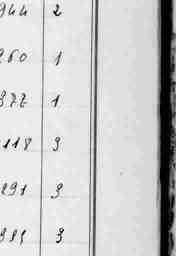 944 2
260 1
372 1
118 3
291 3
3